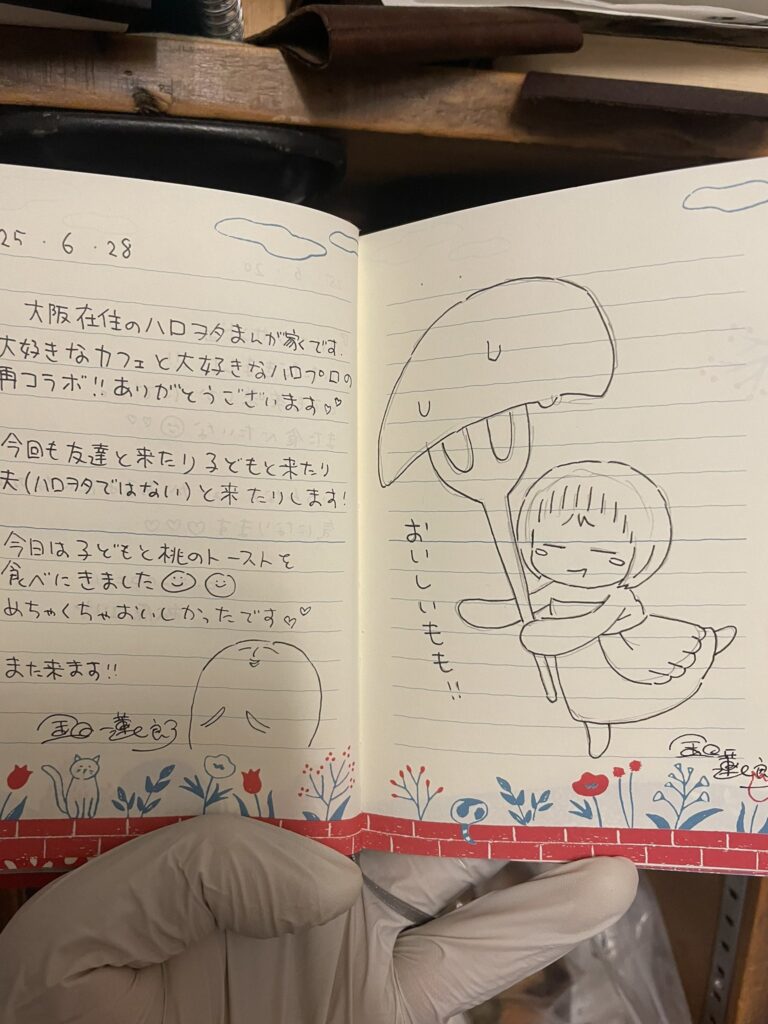 25・6・28
大阪在住のハロヲタまんが家です.
大好きなカフェと大好きなハロプロの
再コラボ!!ありがとうございます♡♡
今回も友達と来たり子どもと来たり
夫(ハロヲタではない)と来たりします!
今日は子どもと桃のトーストを
食べにきました☺☺
めちゃくちゃおいしかったです♡♡
また来ます!!
おいしいもも!!